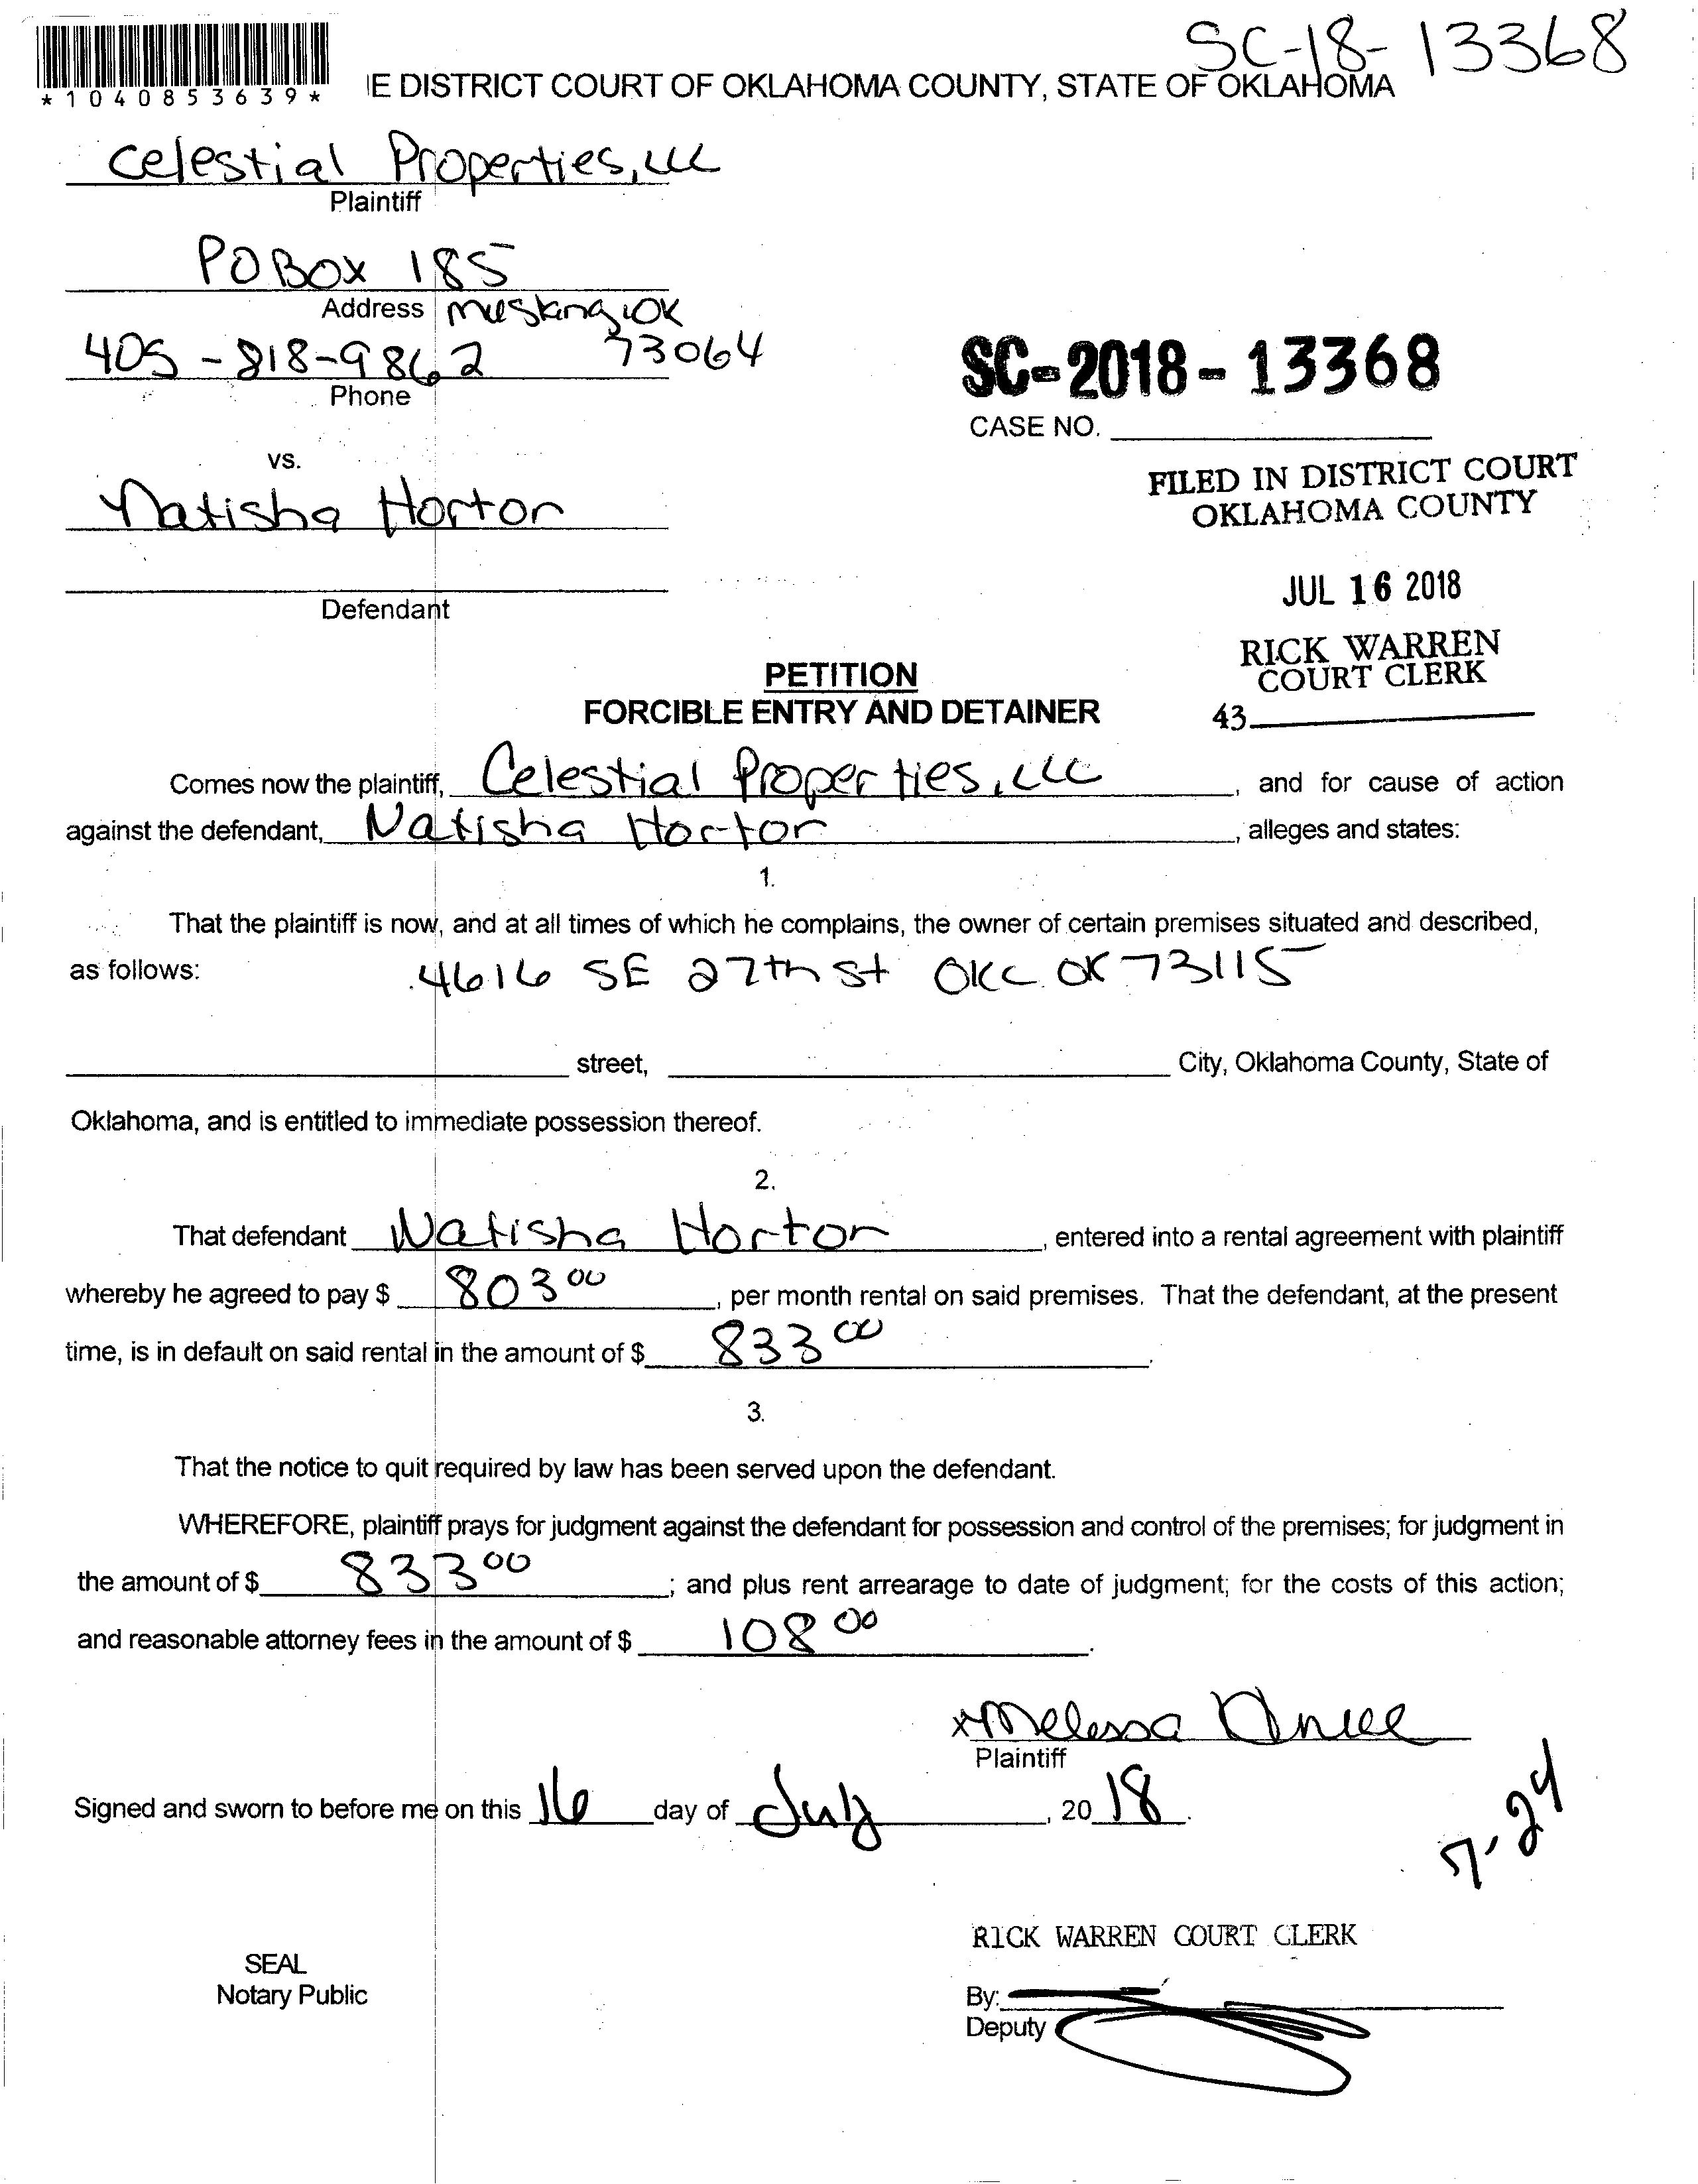 SC-18-13368
*1040853639*
IE DISTRICT COURT OF OKLAHOMA COUNTY, STATE OF OKLAHOMA
Celestial Properties, LLC
Plaintiff
PO Box 185
Address Mustang, OK
405-818-9862 73064
Phone
SC-2018-13368
CASE NO.
vs.
Natisha Horton
Defendant
FILED IN DISTRICT COURT
OKLAHOMA COUNTY
JUL 16 2018
RICK WARREN
COURT CLERK
43
PETITION
FORCIBLE ENTRY AND DETAINER
Comes now the plaintiff, Celestial Properties, LLC, and for cause of action
against the defendant, Natisha Horton, alleges and states:
1.
That the plaintiff is now, and at all times of which he complains, the owner of certain premises situated and described,
as follows: 4616 SE 27th St OKC OK 73115
street, City, Oklahoma County, State of
Oklahoma, and is entitled to immediate possession thereof.
2.
That defendant Natisha Horton, entered into a rental agreement with plaintiff
whereby he agreed to pay $ 803 00, per month rental on said premises. That the defendant, at the present
time, is in default on said rental in the amount of $ 833 00.
3.
That the notice to quit required by law has been served upon the defendant.
WHEREFORE, plaintiff prays for judgment against the defendant for possession and control of the premises; for judgment in
the amount of $ 833 00; and plus rent arrearage to date of judgment; for the costs of this action;
and reasonable attorney fees in the amount of $ 108 00.
x Melissa
Plaintiff
Signed and sworn to before me on this 16 day of July, 20 18.
7-24
RICK WARREN COURT CLERK
SEAL
Notary Public
By:
Deputy